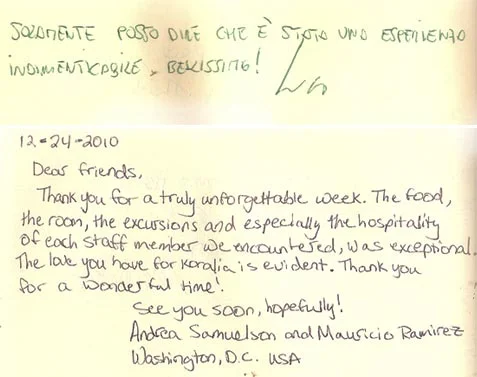 SOLAMENTE POSSO DIRE CHE È STATA UNA ESPERIENZA
INDIMENTICABILE, BELLISSIMO!
12-24-2010
Dear friends,
Thank you for a truly unforgettable week. The food,
the room, the excursions and especially the hospitality
of each staff member we encountered, was exceptional.
The love you have for Koralia is evident. Thank you
for a wonderful time!
See you soon, hopefully!
Andrea Samuelson and Mauricio Ramirez
Washington, D.C. USA